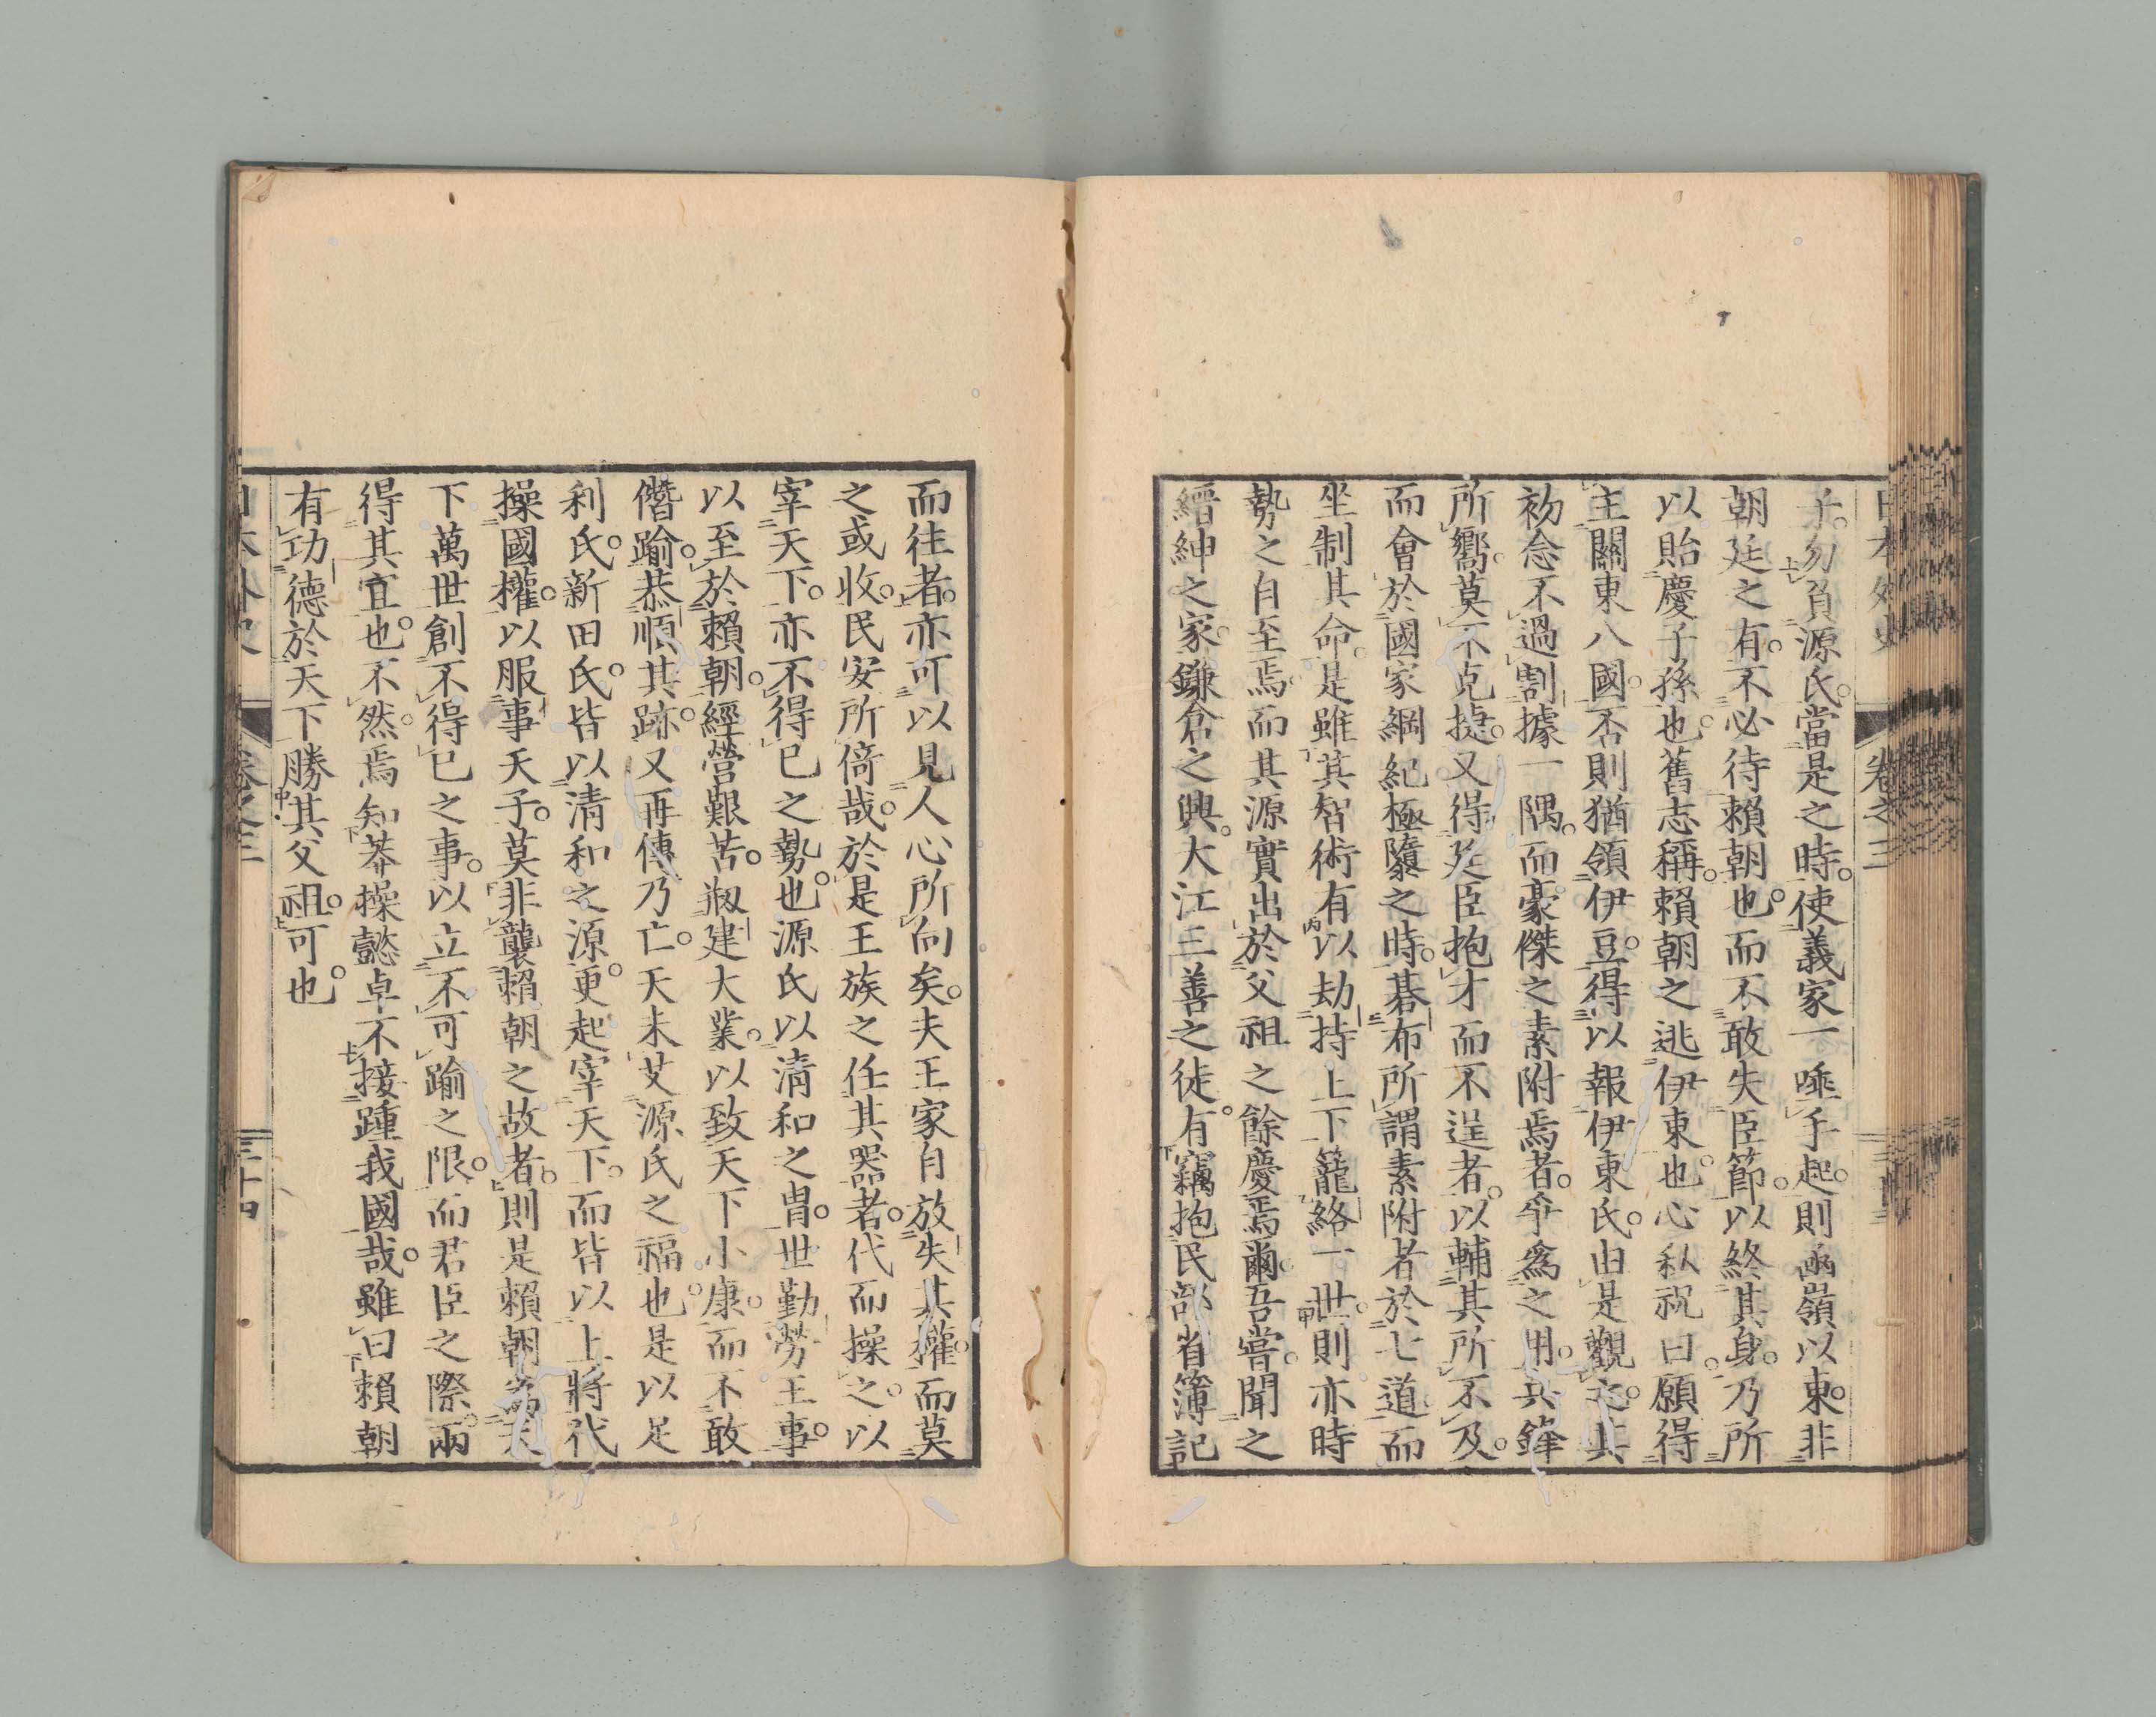 日本外史 卷之三
子。勿負源氏。當是之時。使義家一唾手起。則函嶺以東。非
朝廷之有。不必待賴朝也。而不敢失臣節。以終其身。乃所
以貽慶子孫也。舊志稱。賴朝之逃伊東也。心私祝曰。願得
主關東八國。否則猶領伊豆。得以報伊東氏。由是觀之。其
初念不過割據一隅。而豪傑之素附焉者。爭爲之用。其鋒
所嚮。莫不克捷。又得廷臣抱才而不逞者。以輔其所不及。
而會於國家綱紀極隳之時。碁布所謂素附者於七道而
坐制其命。是雖其智術有以劫持上下籠絡一世。則亦時
勢之自至焉。而其源實出於父祖之餘慶焉爾。吾嘗聞之
縉紳之家。鎌倉之興。大江三善之徒。有竊抱民部省簿記
而往者。亦可以見人心所向矣。夫王家自放失其權。而莫
之或收。民安所倚哉。於是王族之任其器者。代而操之。以
宰天下。亦不得已之勢也。源氏以清和之胄。世勤勞王事。
以至於賴朝。經營艱苦。剏建大業。以致天下小康。而不敢
僭踰。恭順其跡。又再傳乃亡。天未艾源氏之福也。是以足
利氏。新田氏。皆以清和之源。更起宰天下。而皆以上將代
操國權。以服事天子。莫非襲賴朝之故者。則是賴朝爲天
下萬世創不得已之事。以立不可踰之限。而君臣之際。兩
得其宜也。不然。焉知莽操懿卓不接踵我國哉。雖曰賴朝
有功德於天下勝其父祖。可也。
日本外史 卷之三 三十四